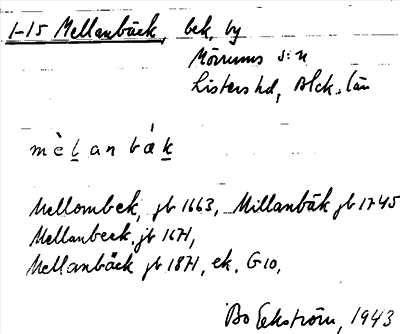 1-15 Mellanbäck, bek, by
Mörrums s:n
Listers hd, Blek. län
mèlanbák
Mellombek, jb 1663, Millanbäk jb 1745
Mellanbeck jb 1671,
Mellanbäck jb 1871, ek. G10,
Bo Eckström, 1943